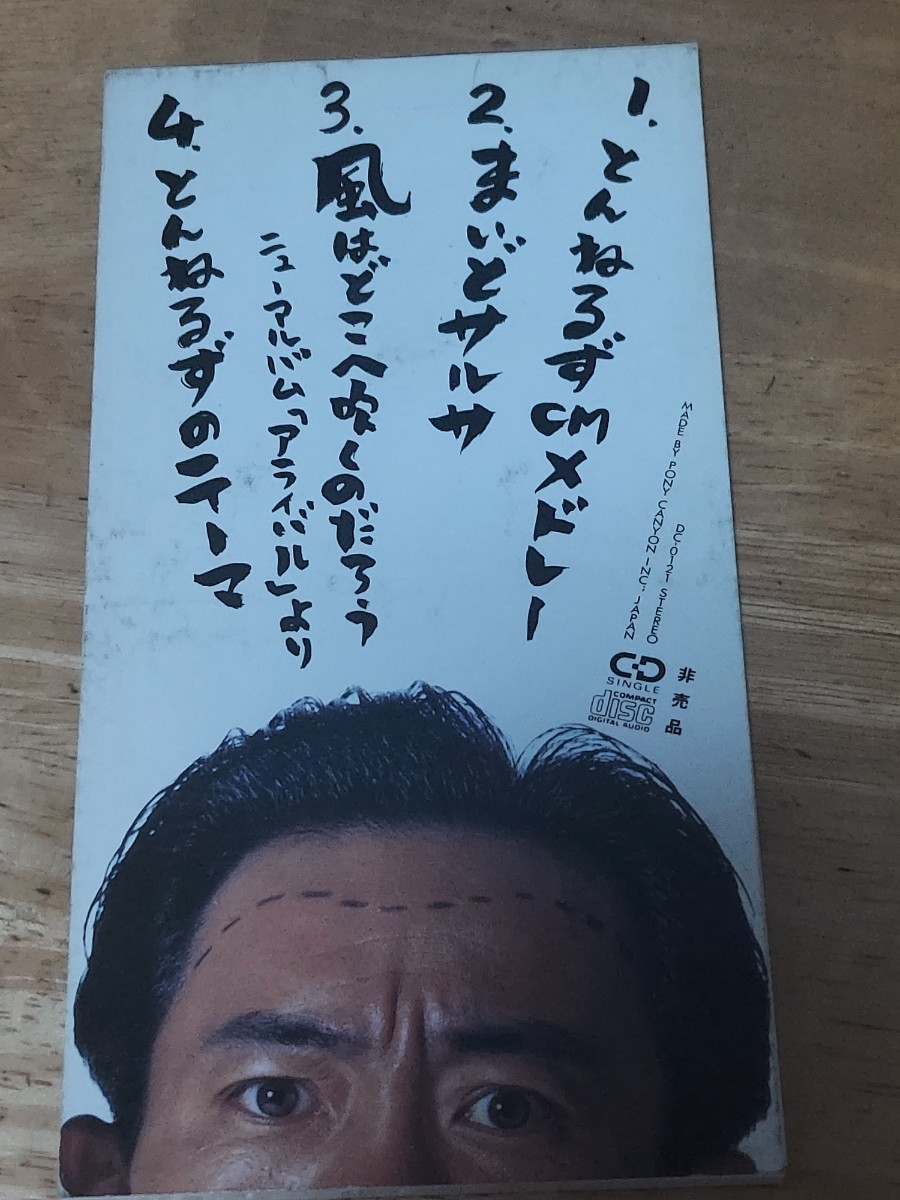 1. とんねるずCMメドレー
2. まいどサルサ
3. 風はどこへ吹くのだろう
ニューアルバム「アライバル」より
4. とんねるずのテーマ
MADE BY PONY CANYON INC., JAPAN
DC-0121 STEREO
CD
SINGLE
COMPACT
disc
DIGITAL AUDIO
非売品